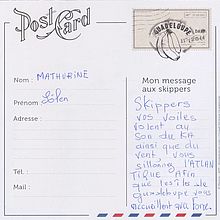 Post Card
GUADELOUPE
Nom : MATHURINE
Prénom : Solen
Adresse :
Tél. :
Mail :
Mon message
aux skippers
Skippers
vos voiles
volent au
son du KA
ainsi que du
vent, vous
sillonnez l'ATLAN
TIQUE afin
que les îles de
Guadeloupe vous
accueillent avec